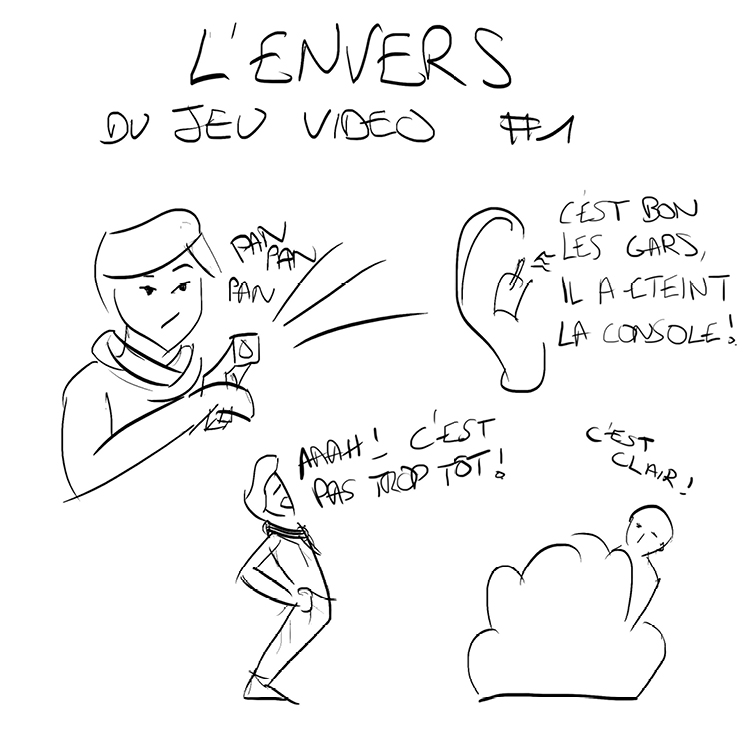 L'ENVERS
DU JEU VIDEO #1
PAN
PAN
PAN
C'EST BON
LES GARS,
IL A ETEINT
LA CONSOLE!
AAAH! C'EST
PAS TROP TÔT!
C'EST
CLAIR!